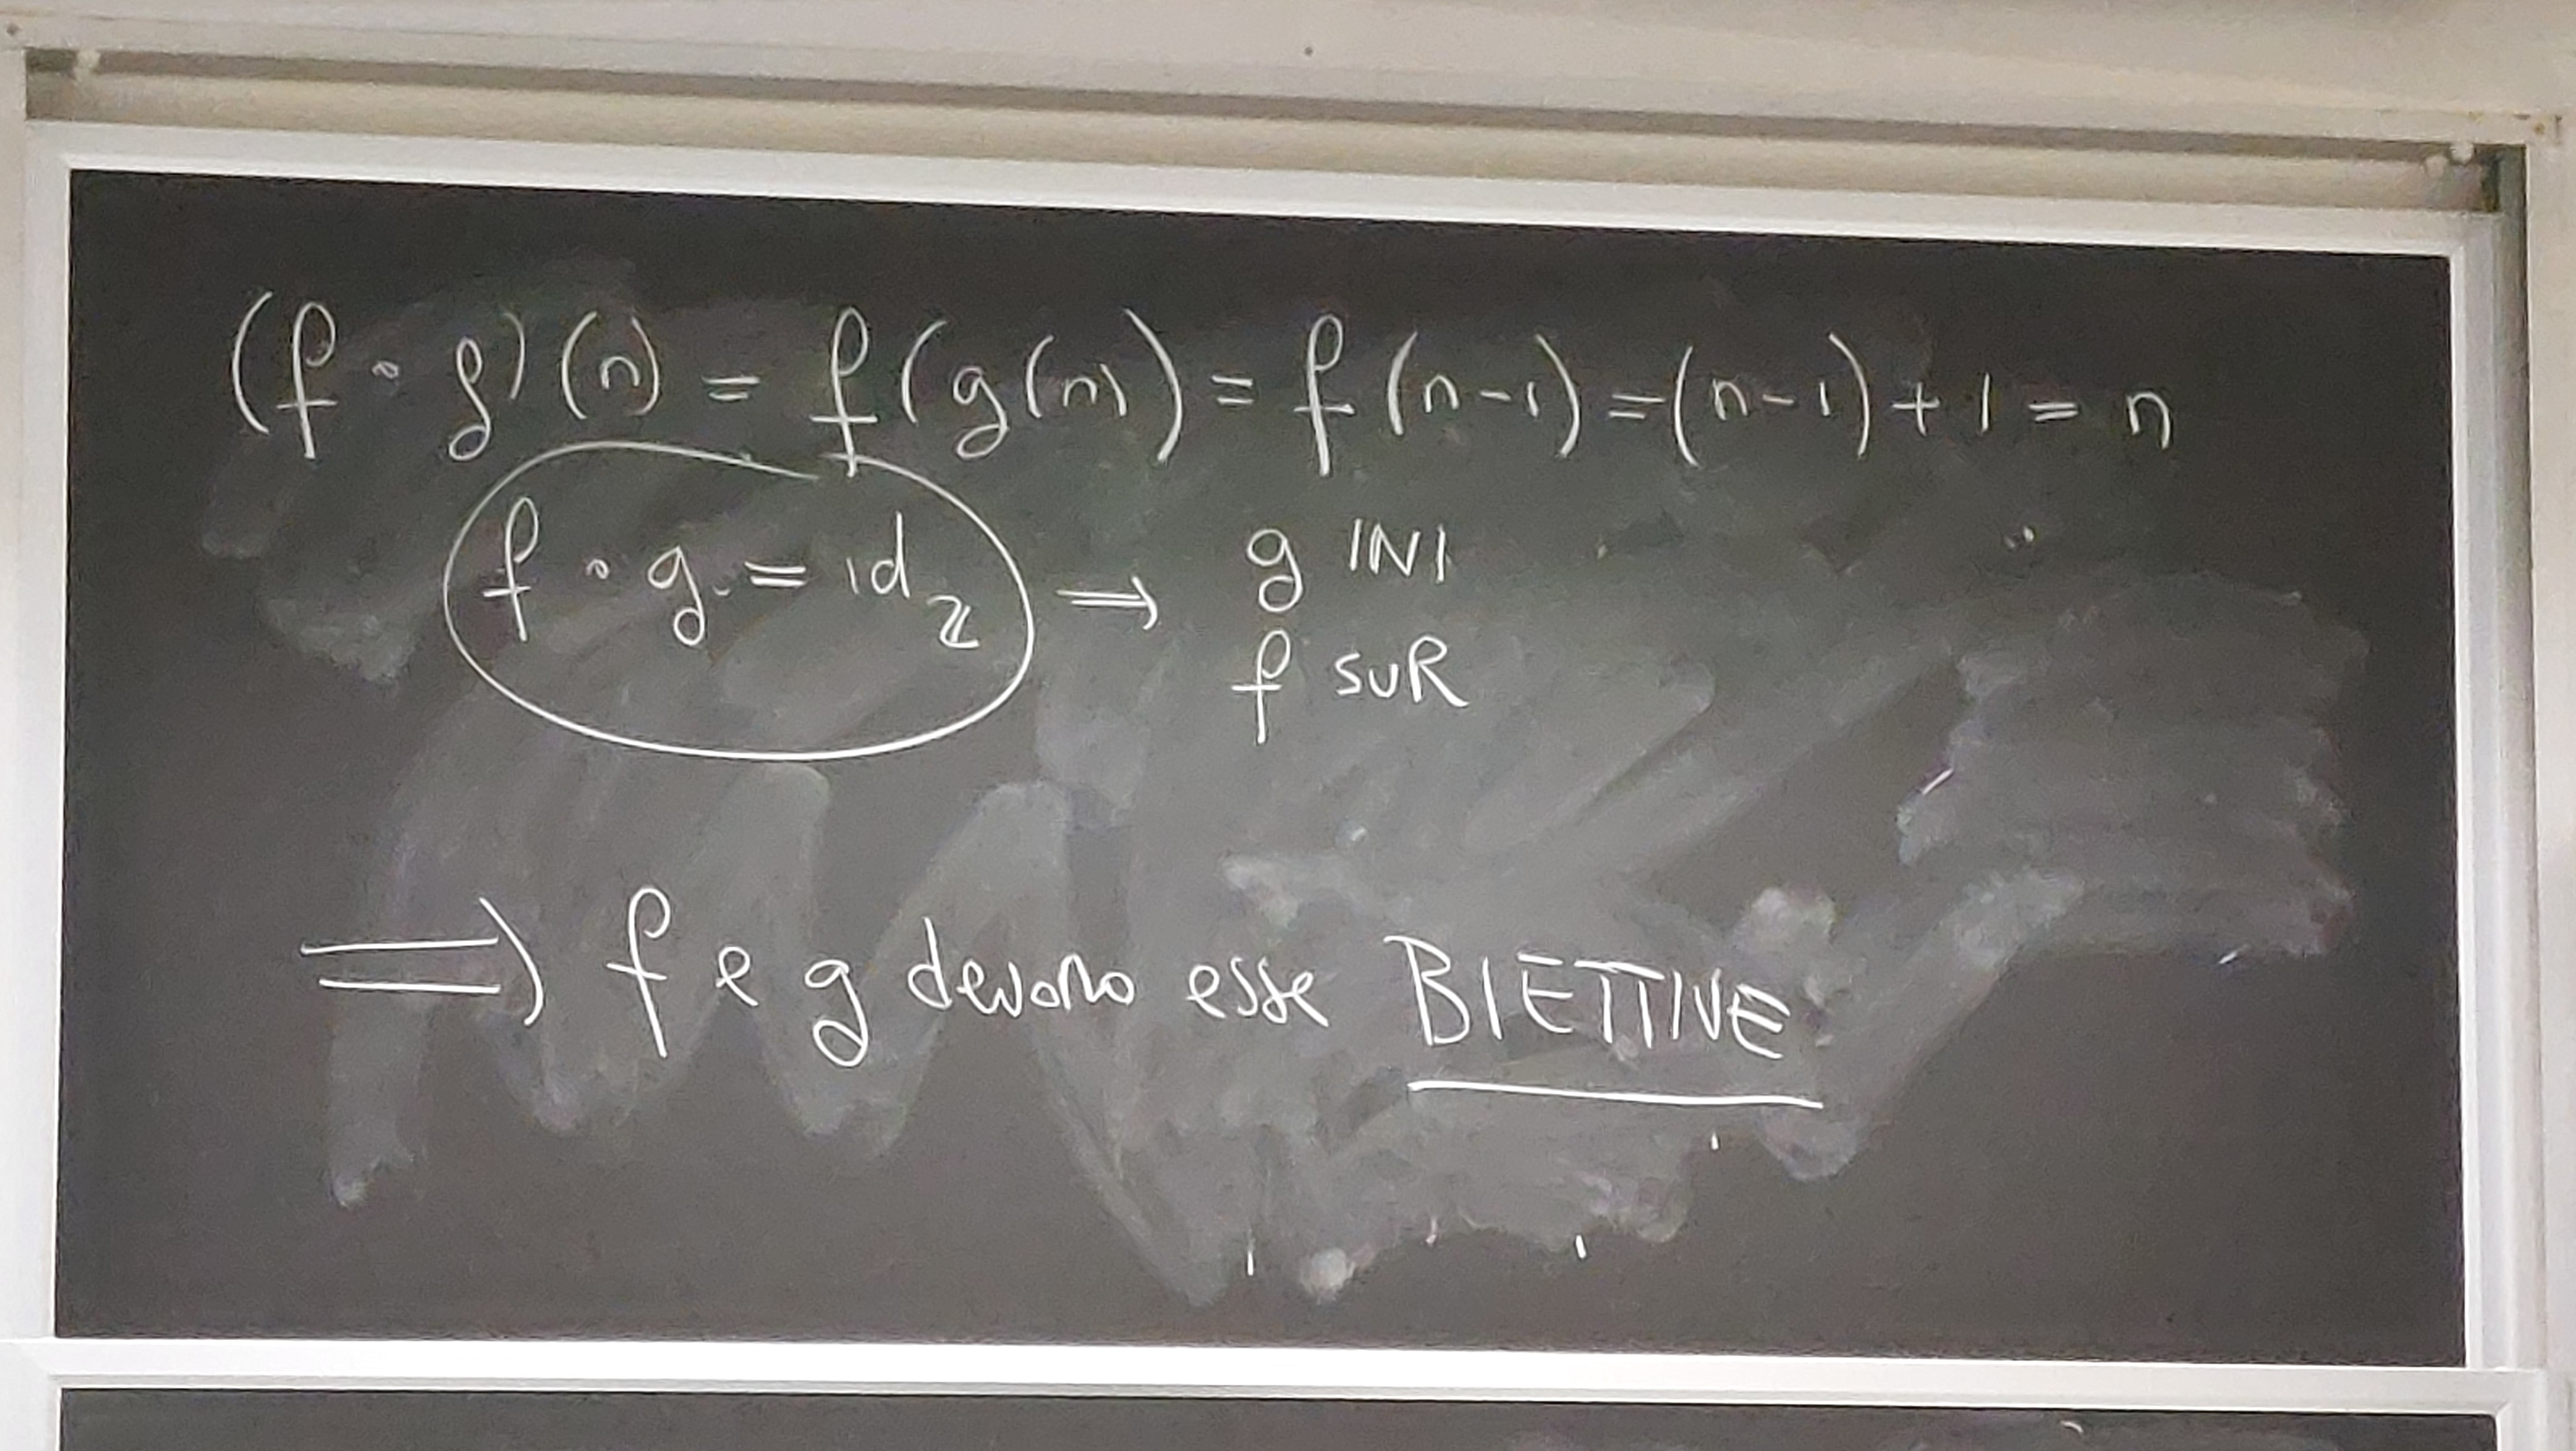 (f ∘ g)(n) = f(g(n)) = f(n-1) = (n-1)+1 = n
f ∘ g = id_ℤ ⇒ g INI
f SUR
⇒ f e g devono esse BIETTIVE